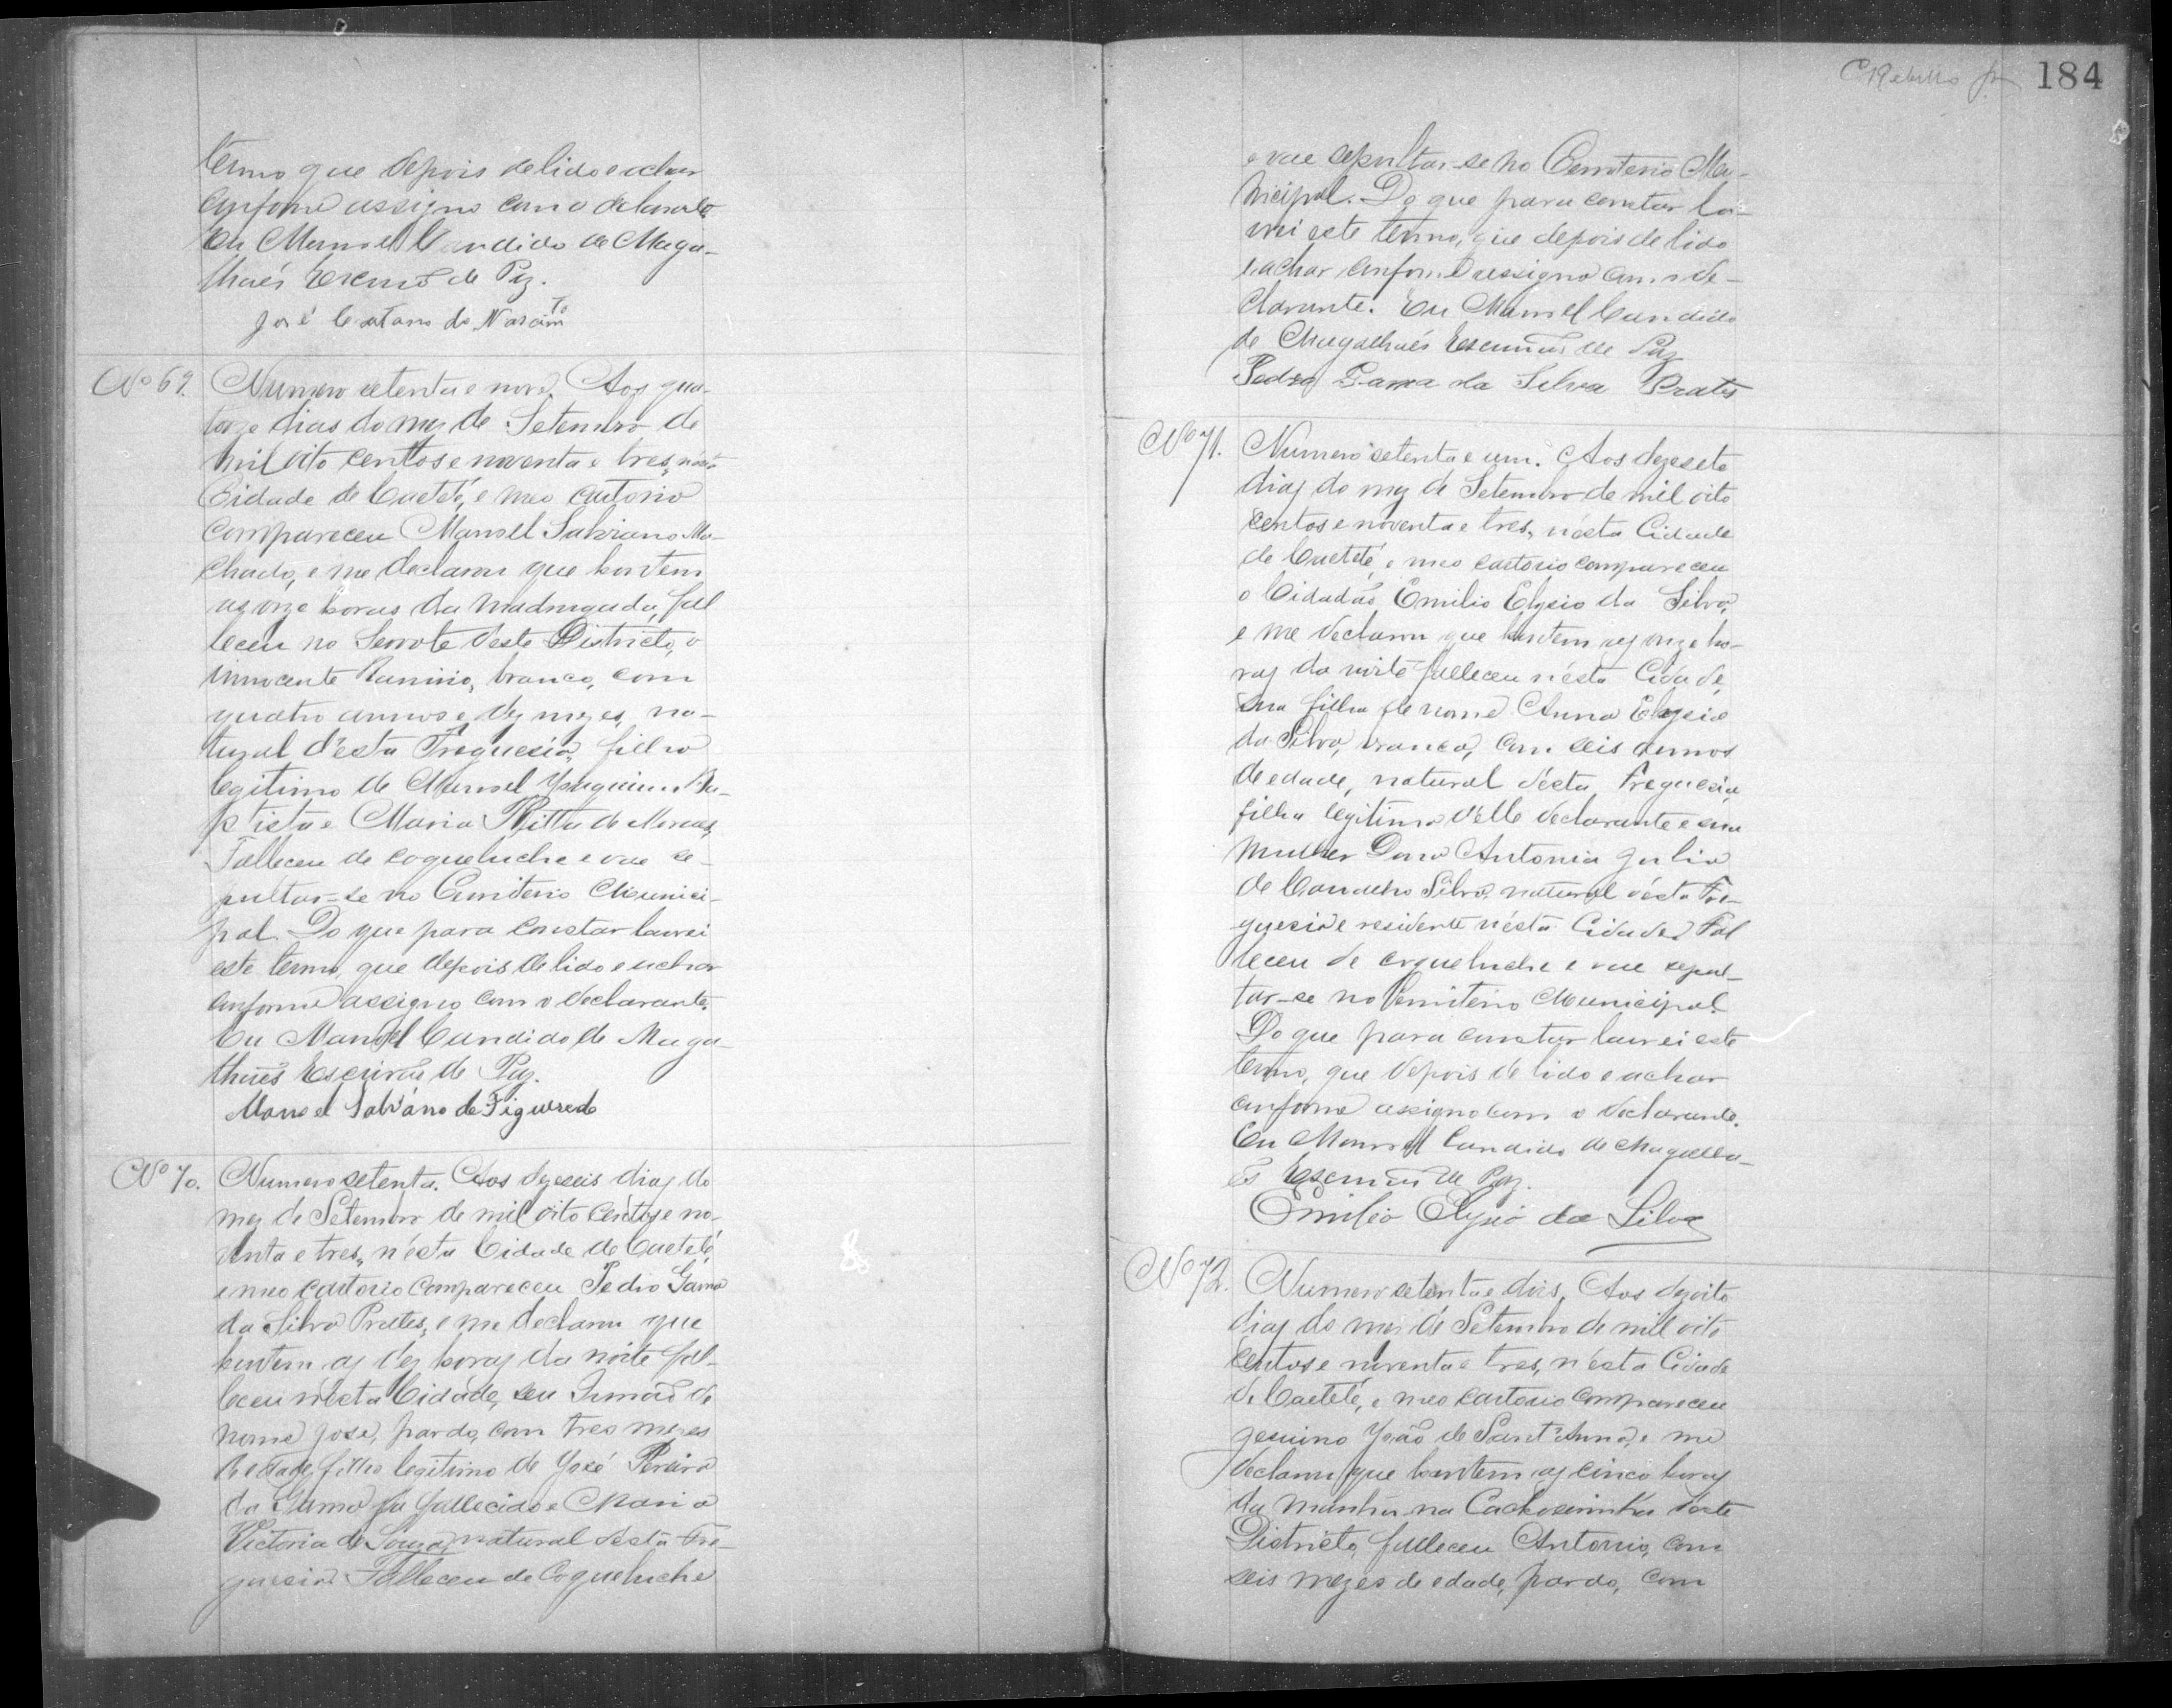 termo que depois de lido e achar
conforme assigno com o declarante
Eu Manoel Candido de Maga-
lhaēs Escrivão de Paz.
José Caetano do Nascimto
No 69. Numero setenta e nove. Aos qua-
torze dias do mez de Setembro de
mil oito centos e noventa e tres, nésta
Cidade de Caeteté, e meo cartorio
compareceu Manoel Salviano Ma-
chado, e me declarou que hontem
as onze horas da madrugada, fal
leceu no Serrote deste Districto, o
innocente Ramiro, branco, com
quatro annos e dez mezes, na-
tural d'esta Freguesia, filho
legitimo de Manoel Joaquim Ba-
ptista e Maria Ritta de
Falleceu de coqueluche e vae se-
pultar-se no Cemiterio Munici-
pal. Do que para constar lavrei
este termo, que depois de lido e achar
conforme assigno com o declarante.
Eu Manoel Candido de Maga-
lhaēs Escrivão de Paz.
Manoel Salviano de Figueredo
No 70. Numero setenta. Aos dezeseis dias do
mez de Setembro de mil oito centos e no-
venta e tres, n'ésta Cidade de Caeteté,
e meo cartorio compareceu Pedro Gama
da Silva Prates, e me declarou que
hontem as dez horas da noite fal-
leceu nésta Cidade, seu Irmão de
nome José, pardo, com tres mezes
de edade, filho legitimo de José Pereira
da Gama já fallecido e Maria
Victoria de Souza, natural désta Fre-
guesia. Falleceu de Coqueluche
184
e vae sepultar-se no Cemiterio Mu-
nicipal. Do que para constar la-
vrei este termo, que depois de lido
e achar conforme assigno com o de-
clarante. Eu Manoel Candido
de Magalhaēs Escrivão de Paz
Pedro Gama da Silva Prates
No 71. Numero setenta e um. Aos dezesete
dias do mez de Setembro de mil oito
centos e noventa e tres, nésta Cidade
de Caeteté, e meo cartorio compareceu
o Cidadão Emilio Elysio da Silva,
e me declarou que hontem as onze ho-
ras da noite falleceu n'ésta Cidade,
sua filha de nome Anna Elysia
da Silva, branca, com seis annos
de edade, natural désta Freguesia,
filha legitima d'elle declarante e sua
mulher Dona Antonia Julia
de Carvalho Silva, natural désta Fre-
guesia e residente nésta Cidade. Fal
leceu de coqueluche e vae sepul-
tar-se no Cemiterio Municipal.
Do que para constar lavrei este
termo, que depois de lido e achar
conforme assigno com o declarante.
Eu Manoel Candido de Magalha-
ēs Escrivão de Paz.
Emilio Elysio da Silva
No 72. Numero setenta e dois. Aos dezoito
dias do mez de Setembro de mil oito
centos e noventa e tres, n'ésta Cidade
de Caeteté, e meo cartorio compareceu
Jesuino João de Sant'Anna, e me
declarou que hontem as cinco horas
da manhã na Cachoeirinha deste
Districto, falleceu Antonio, com
seis mezes de edade, pardo, com